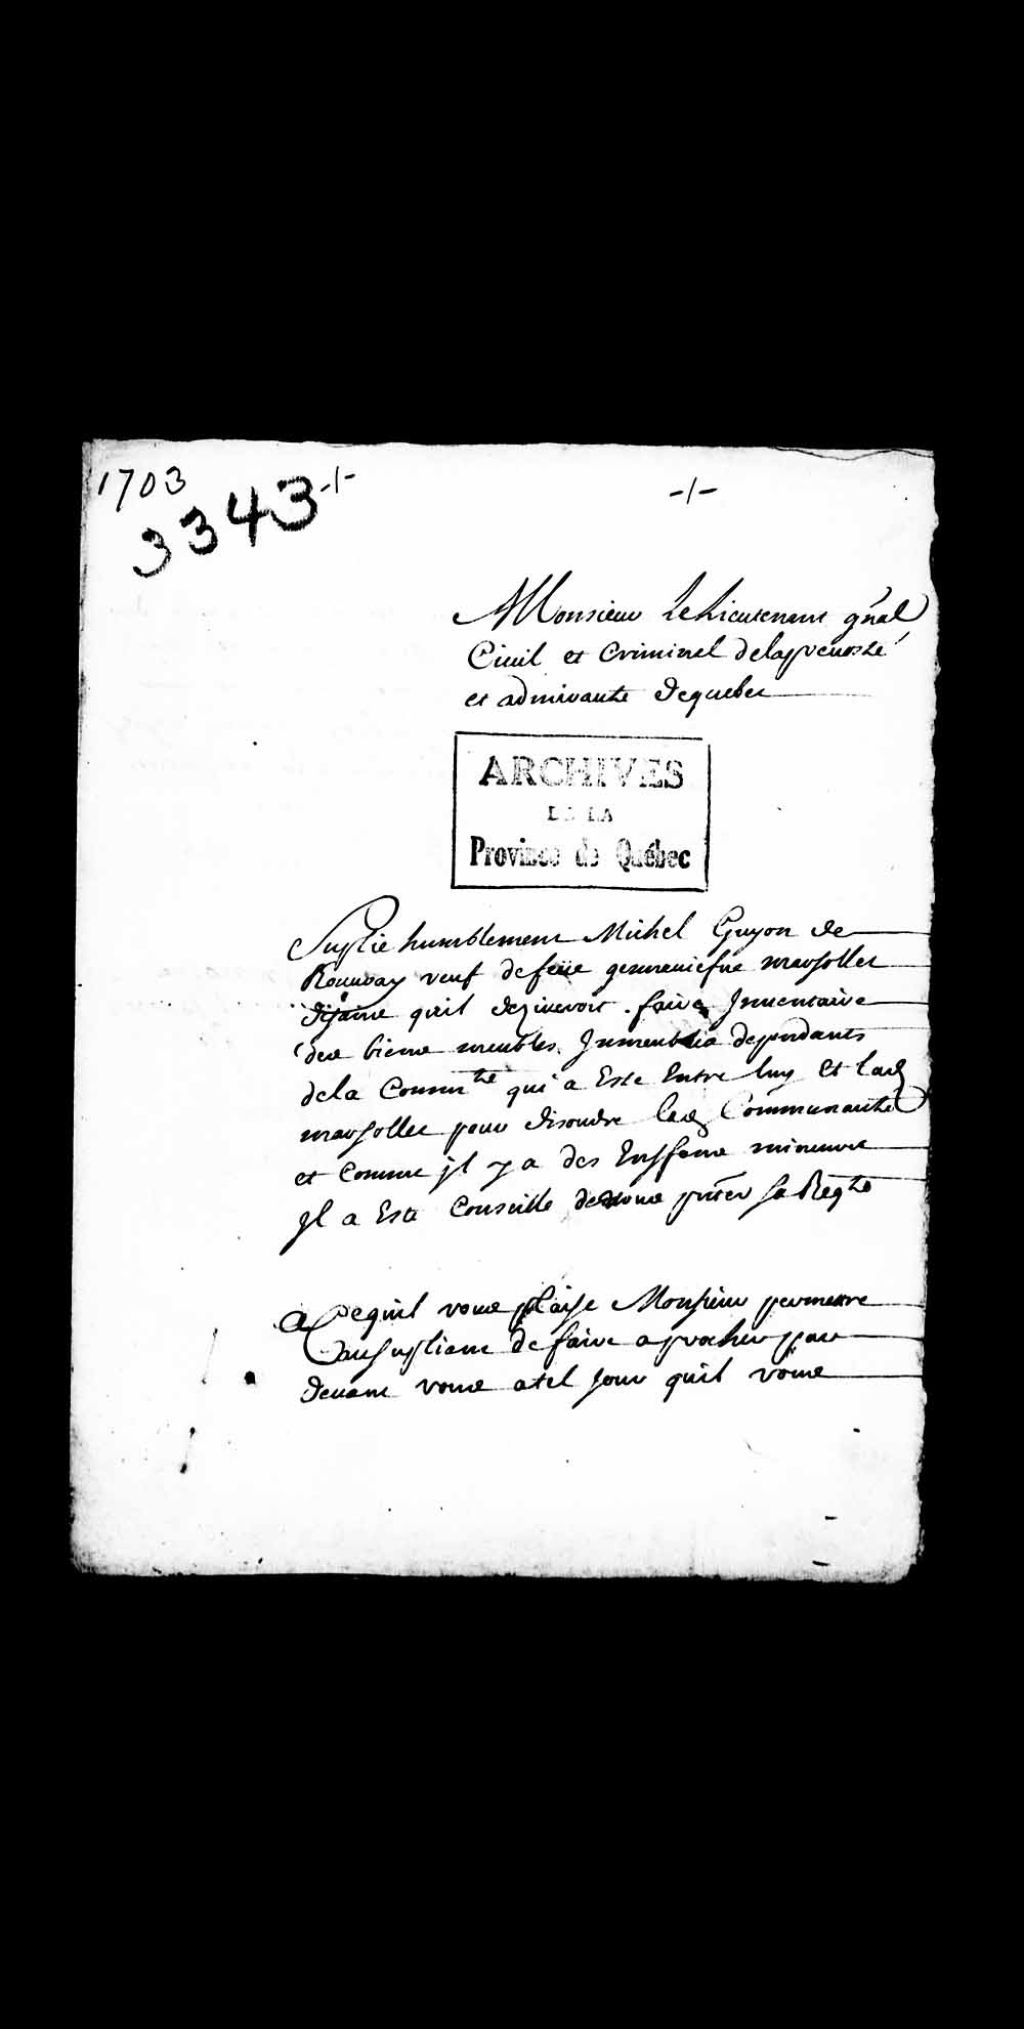 1703
3343 -/-
-/-
Monsieur Le Lieutenant gñal
Ciuil et Criminel de la preuosté
et admirauté de quebec
ARCHIVES
DE LA
Province de Québec
Suplie humblement Michel Guyon de
Rouuray veuf de feüe geneuiefue marsollet
disant quil dezireroit faire Inuentaire
des biens meubles Inmeubles dependants
de la Commté qui a Esté Entre luy Et lad
marsollet pour disoudre lad Communauté
et Comme jl y a des Enffans mineurs
Jl a Esté Conseillé de vous pñter sa Reqte
a Ce quil vous plaise Monsieur permettre
au supliant de faire aprocher par
deuant vous a tel jour quil vous